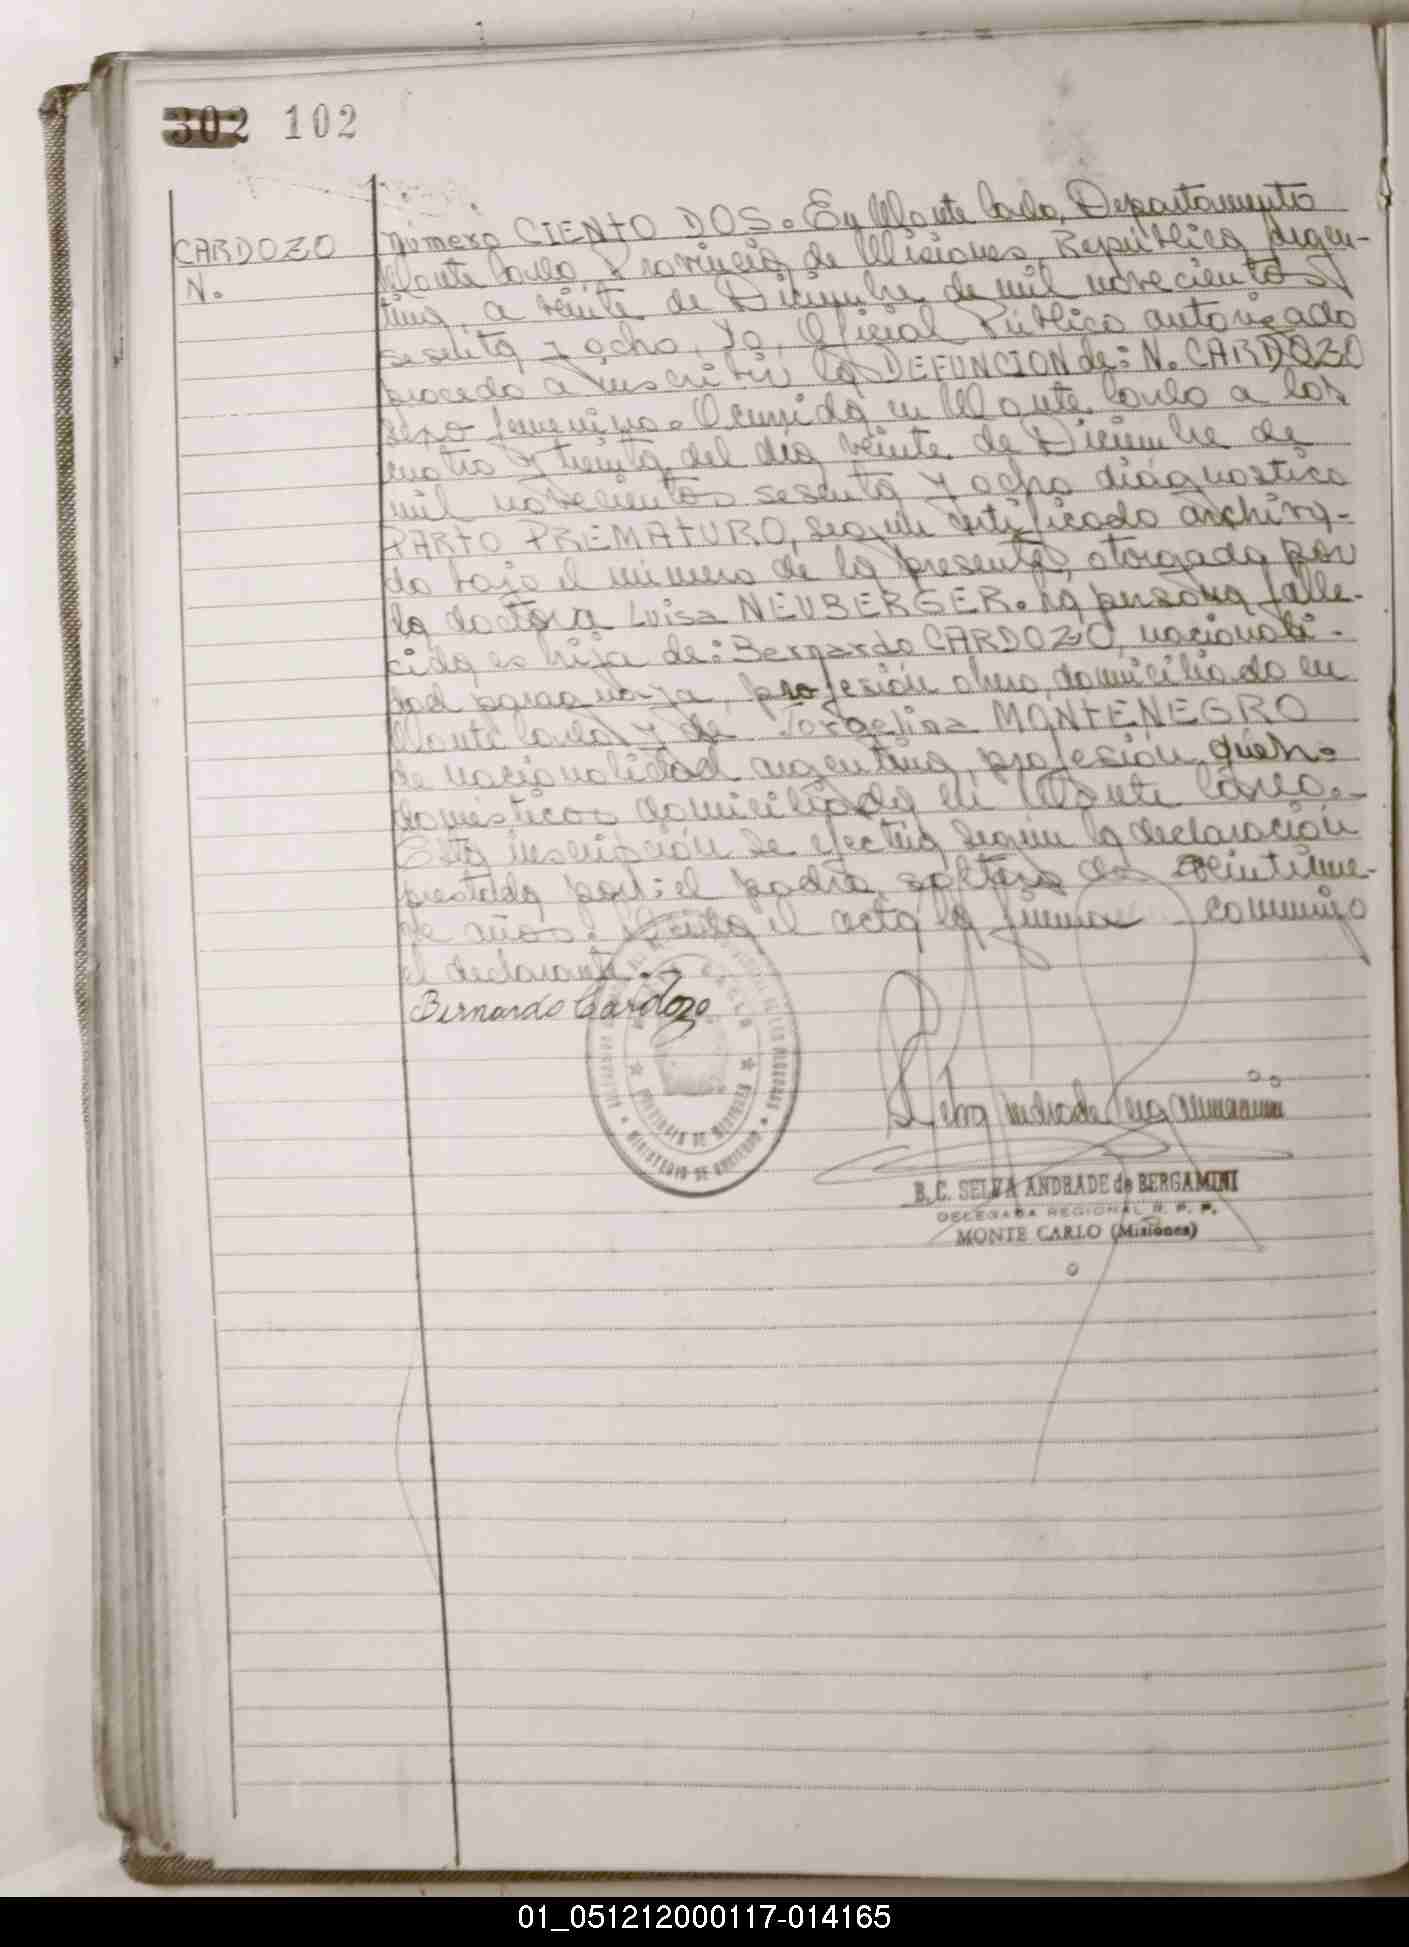 302 102
CARDOZO
N.
Número CIENTO DOS. En Monte Carlo, Departamento
Monte Carlo, Provincia de Misiones, República Argen-
tina, a veinte de Diciembre de mil novecientos
sesenta y ocho, Yo, Oficial Público autorizado
procedo a inscribir la DEFUNCION de: N. CARDOZO
sexo femenino. Ocurrida en Monte Carlo a los
cuatro y treinta del día veinte de Diciembre de
mil novecientos sesenta y ocho diagnostico
PARTO PREMATURO, según certificado archiva-
do bajo el número de la presente, otorgada por
la doctora Luisa NEUBERGER. La persona falle-
cida es hija de: Bernardo CARDOZO, nacionali-
dad paraguaya, profesión obrero, domiciliado en
Monte Carlo y de MONTENEGRO
de nacionalidad argentina, profesión queh.
domésticos domiciliada en Monte Carlo.
Esta inscripción se efectua según la declaración
prestada por: el padre, soltero de veintinue-
ve años. Leída el acta la firma conmigo
el declarante.
Bernardo Cardozo
PROVINCIA DE MISIONES
MINISTERIO DE GOBIERNO
B. C. SELVA ANDRADE de BERGAMINI
DELEGADA REGIONAL R. P. P.
MONTE CARLO (Misiones)
01_051212000117-014165